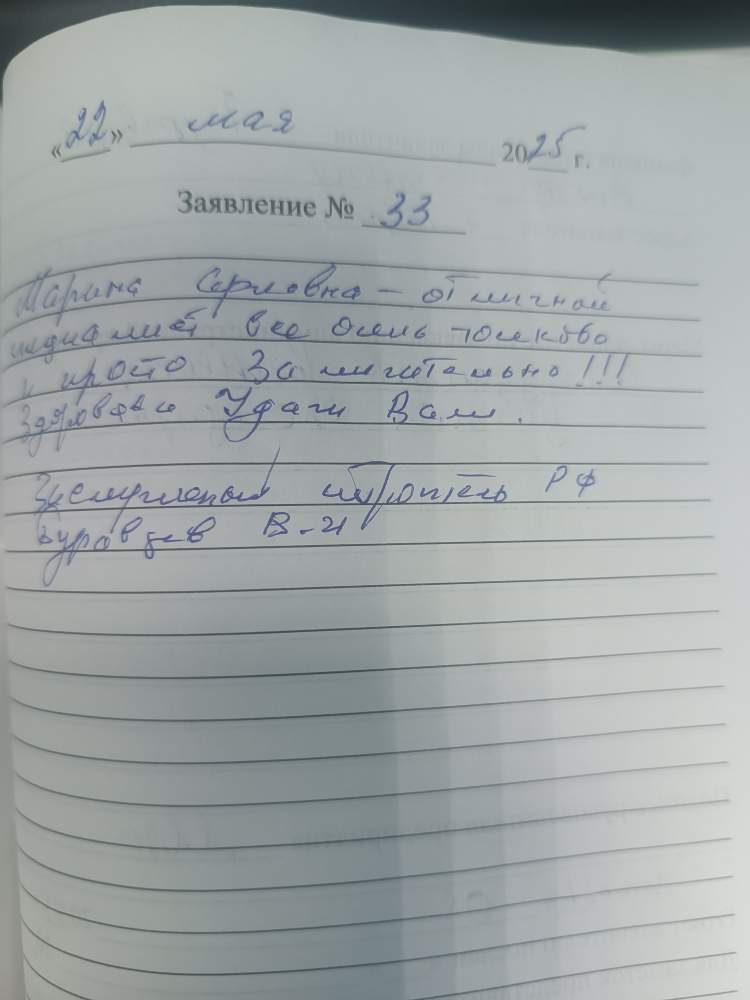 «22» мая 2025 г.
Заявление № 33
Марина Карловна – отличный
специалист все очень толково
и просто Замечательно!!!
Здоровья и Удачи Вам.
Заслуженный строитель РФ
В-И